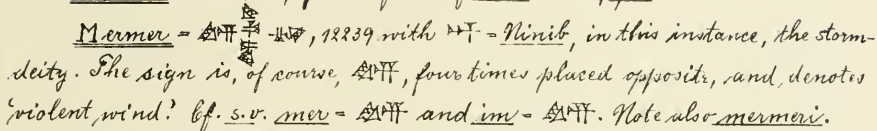 Mermer = 𒅎, 12239 with 𒀭 = Ninib, in this instance, the storm-
deity. The sign is, of course, 𒅎, four times placed opposite, and, denotes
'violent wind'. Cf. s.v. mer = 𒅎 and im = 𒅎. Note also mermeri.